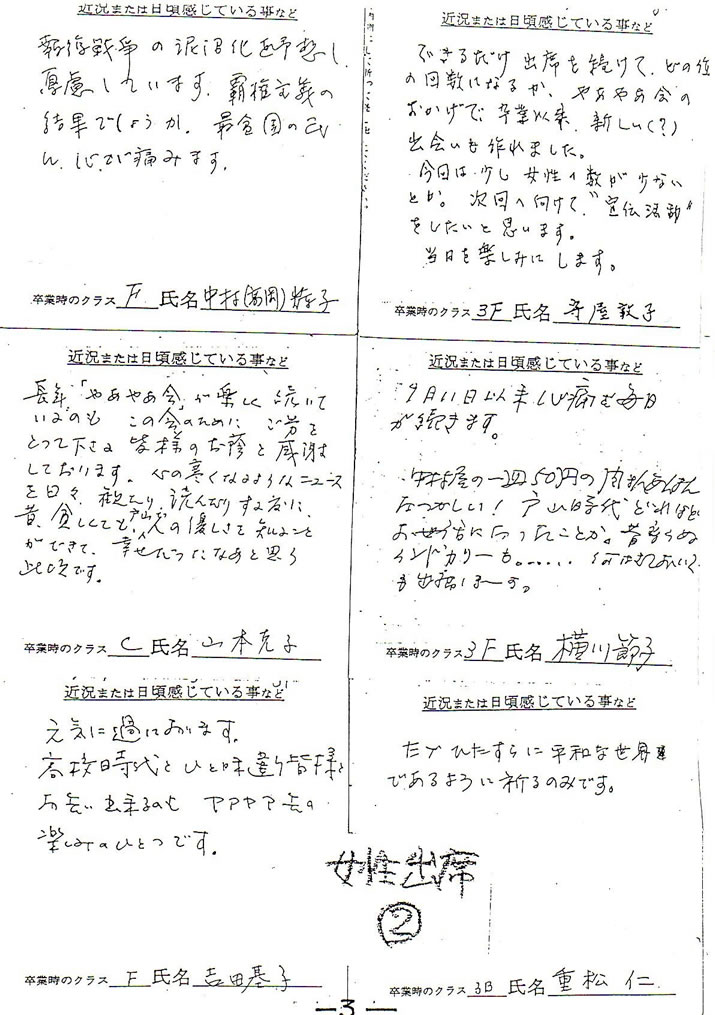 近況または日頃感じている事など
報復戦争の泥沼化を予想し
憂慮しています。覇権主義の
結果でしょうか。最貧国の民
心が痛みます。
卒業時のクラス F 氏名 中村(高岡) 子
近況または日頃感じている事など
できるだけ出席を続けて、どの位
の回数になるか、やあやあ会の
おかげで卒業以来、新しい(?)
出会いも作れました。
今回は少し女性の数が少ない
とか。次回へ向けて、"宣伝活動"
をしたいと思います。
当日を楽しみにします。
卒業時のクラス 3F 氏名 寺屋敦子
近況または日頃感じている事など
長年「やあやあ会」が楽しく続いて
いるのも この会のために ご労を
とって下さる皆様のお蔭と感謝
しております。心の寒くなるようなニュース
を日々、観たり、読んだりする者に、
昔、貧しくても人の優しさを知ること
ができて、幸せだったなあと思う
此頃です。
卒業時のクラス C 氏名 山本克子
近況または日頃感じている事など
9月11日以来心痛む毎日
が続きます。
中村屋の一コ50円の肉まんあんまん
なつかしい! 戸山時代どれほど
お世話になったことか。昔変らぬ
インドカリーも。......
卒業時のクラス 3F 氏名 横川節子
近況または日頃感じている事など
元気に過しております。
高校時代とひと味違う皆様と
お会い出来るのも ヤアヤア会の
楽しみのひとつです。
卒業時のクラス F 氏名 吉田基子
近況または日頃感じている事など
たゞひたすらに平和な世界
であるように祈るのみです。
女性出席
②
卒業時のクラス 3B 氏名 重松 仁
—3—